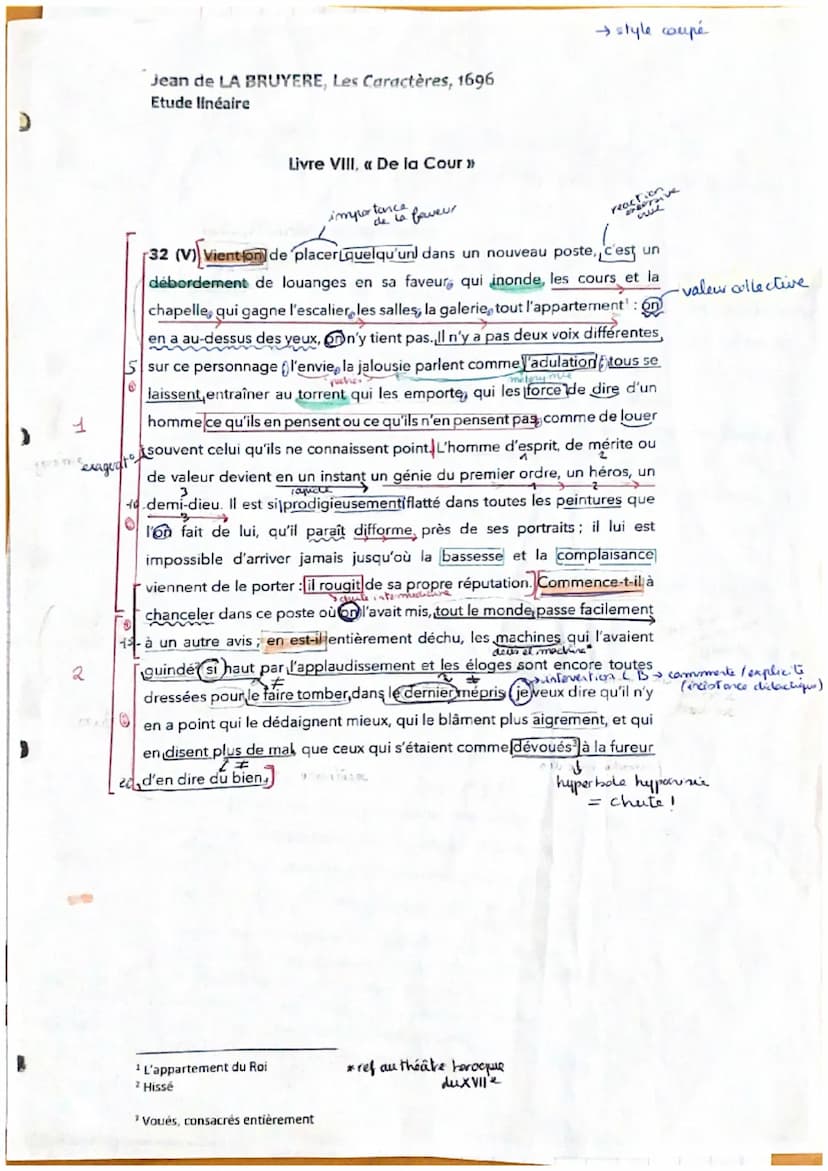 → style coupé
Jean de LA BRUYERE, Les Caractères, 1696
Etude linéaire
Livre VIII, « De la Cour »
importance de la faveur
réaction
valeur collective
32 (V) Vient-on de placer quelqu'un dans un nouveau poste, c'est un
débordement de louanges en sa faveur, qui inonde les cours et la
chapelle, qui gagne l'escalier, les salles, la galerie, tout l'appartement¹ : on
en a au-dessus des yeux, on n'y tient pas. Il n'y a pas deux voix différentes
5 sur ce personnage ; l'envie, la jalousie parlent comme l'adulation ; tous se
laissent entraîner au torrent qui les emporte, qui les force de dire d'un
1
homme ce qu'ils en pensent ou ce qu'ils n'en pensent pas, comme de louer
souvent celui qu'ils ne connaissent point. L'homme d'esprit, de mérite ou
1 2
de valeur devient en un instant un génie du premier ordre, un héros, un
3 rapide 1 2
10 demi-dieu. Il est si prodigieusement flatté dans toutes les peintures que
3
l'on fait de lui, qu'il paraît difforme près de ses portraits ; il lui est
impossible d'arriver jamais jusqu'où la bassesse et la complaisance
viennent de le porter : il rougit de sa propre réputation. Commence-t-il à
chute intermédiaire
chanceler dans ce poste où on l'avait mis, tout le monde passe facilement
15 à un autre avis ; en est-il entièrement déchu, les machines qui l'avaient
deus ex machina*
2
guindé² si haut par l'applaudissement et les éloges sont encore toutes
≠ ≠ intervention LB → commente / explicite
dressées pour le faire tomber dans le dernier mépris ; je veux dire qu'il n'y
en a point qui le dédaignent mieux, qui le blâment plus aigrement, et qui
en disent plus de mal, que ceux qui s'étaient comme dévoués³ à la fureur
≠
20 d'en dire du bien.
hyperbole hypocrisie
= chute !
¹ L'appartement du Roi
² Hissé
* ref au théâtre baroque
du XVIIe
³ Voués, consacrés entièrement